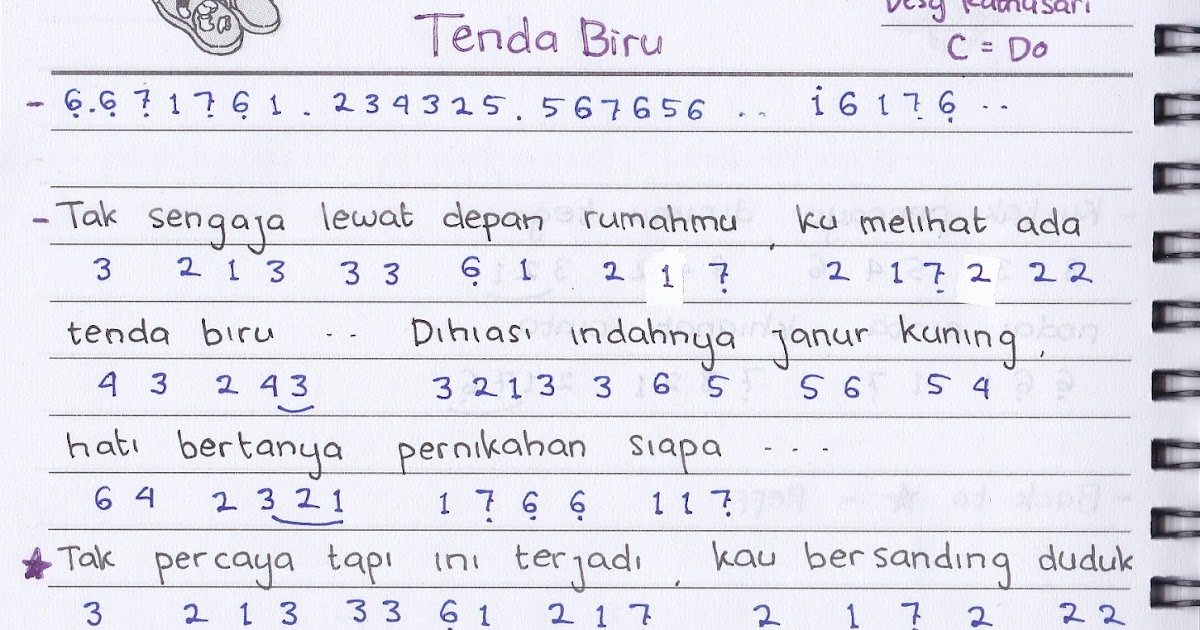 Desy Ratnasari
Tenda Biru
C = Do
- 6̣.6̣ 7̣ 1 7̣ 6̣ 1 . 2 3 4 3 2 5 . 5 6 7 6 5 6 .. i 6 1 7̣ 6̣ ..
- Tak sengaja lewat depan rumahmu, ku melihat ada
3 2 1 3 3 3 6̣ 1 2 1 7̣ 2 1 7̣ 2 2 2
tenda biru ... Dihiasi indahnya janur kuning,
4 3 2 4 3 3 2 1 3 3 6 5 5 6 5 4
hati bertanya pernikahan siapa ...
6 4 2 3 2 1 1 7̣ 6̣ 6̣ 1 1 7̣
★ Tak percaya tapi ini terjadi, kau bersanding duduk
3 2 1 3 3 3 6̣ 1 2 1 7 2 1 7̣ 2 2 2